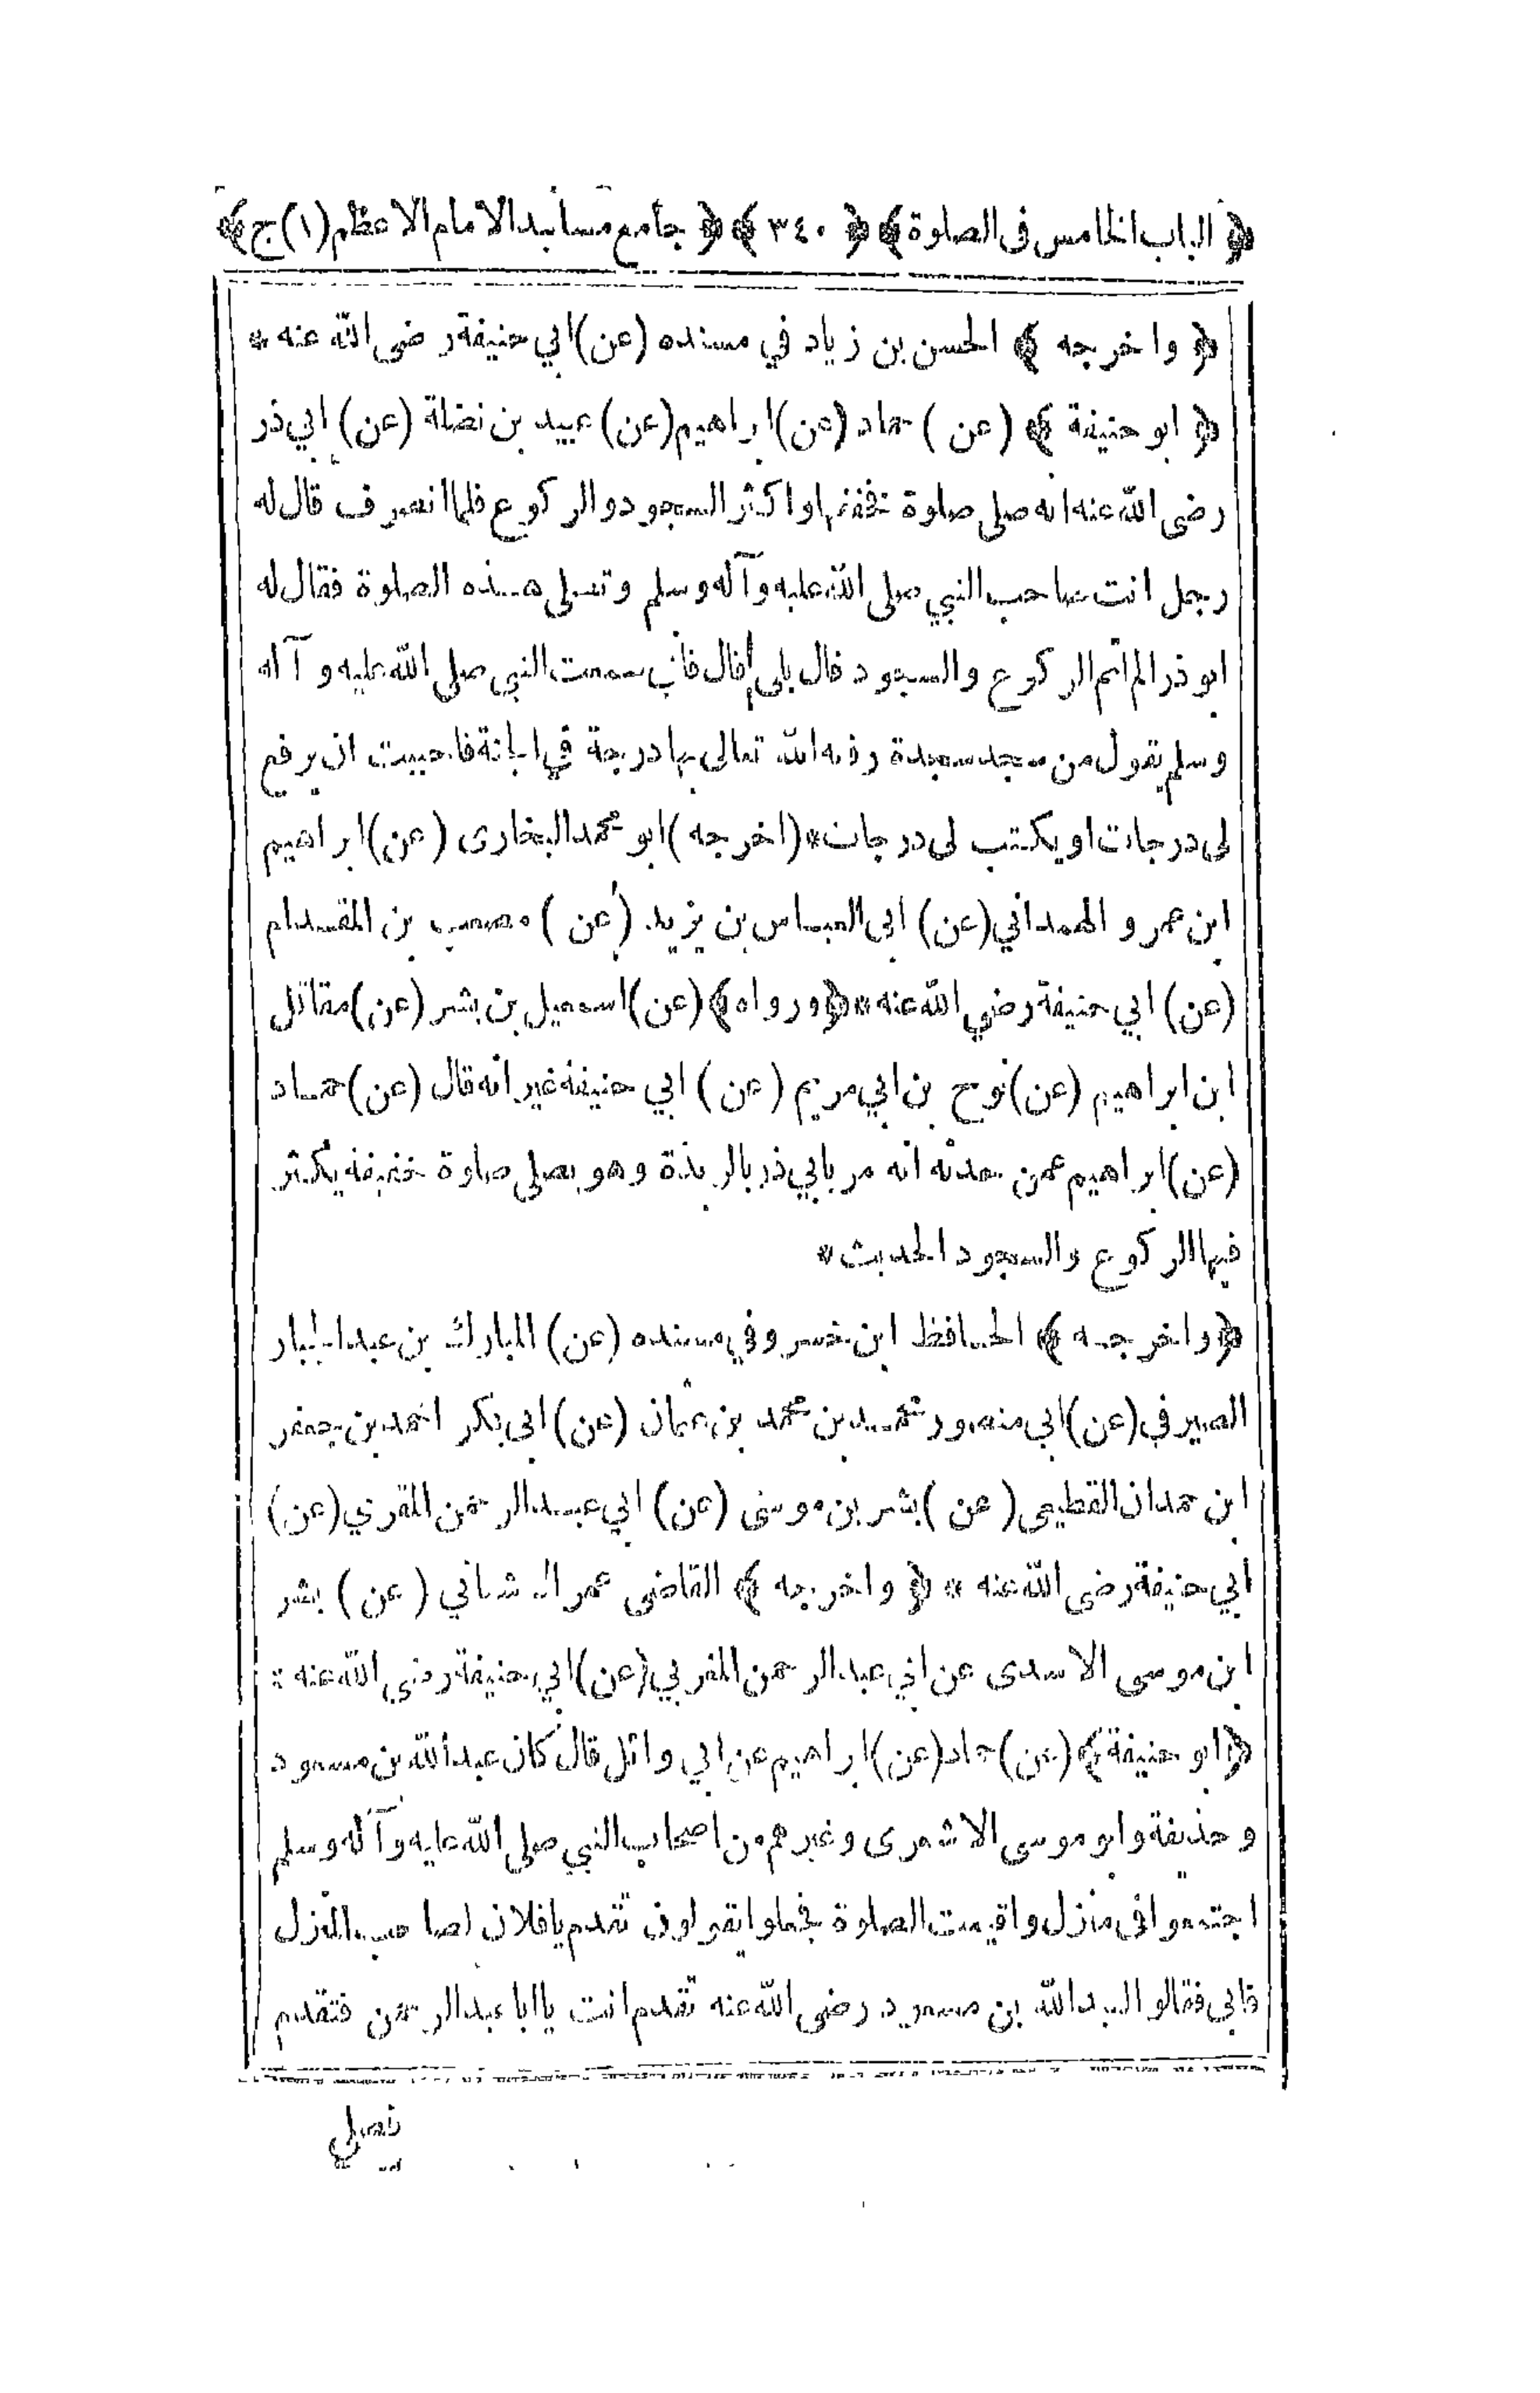 ﴿ الباب الخامس فى الصلوة ﴾ ﴿ ٣٤٠ ﴾ ﴿ جامع مسانيد الامام الاعظم (١) ج ﴾
﴿ واخرجه ﴾ الحسن بن زياد في مسنده (عن) ابي حنيفة رضى الله عنه *
﴿ ابو حنيفة ﴾ (عن) حماد (عن) ابراهيم (عن) عبيد بن نضلة (عن) ابي ذر
رضى الله عنه انه صلى صلوة فخففها واكثر السجود والركوع فلما انصرف قال له
رجل انت صاحب النبي صلى الله عليه وآله وسلم وتصلى هذه الصلوة فقال له
ابو ذر الم اتم الركوع والسجود قال بلى قال فاني سمعت النبي صلى الله عليه وآله
وسلم يقول من سجد سجدة رفعه الله تعالى بها درجة في الجنة فاحببت ان يرفع
لى درجات او يكتب لى درجات * (اخرجه) ابو محمد البخارى (عن) ابراهيم
ابن عمرو الهمداني (عن) ابى العباس بن يزيد (عن) مصعب بن المقدام
(عن) ابي حنيفة رضي الله عنه * ﴿ ورواه ﴾ (عن) اسمعيل بن بشر (عن) مقاتل
ابن ابراهيم (عن) نوح بن ابي مريم (عن) ابي حنيفة غير انه قال (عن) حماد
(عن) ابراهيم عمن حدثه انه مر بابي ذر بالربذة وهو يصلى صلوة خفيفة يكثر
فيها الركوع والسجود الحديث *
﴿ واخرجه ﴾ الحافظ ابن خسرو في مسنده (عن) المبارك بن عبد الجبار
الصيرفي (عن) ابي منصور محمد بن محمد بن عثمان (عن) ابى بكر احمد بن جعفر
ابن حمدان القطيعى (عن) بشر بن موسى (عن) ابي عبد الرحمن المقري (عن)
ابي حنيفة رضى الله عنه * ﴿ واخرجه ﴾ القاضى عمر الاشناني (عن) بشر
ابن موسى الاسدى عن ابي عبد الرحمن المقري (عن) ابي حنيفة رضي الله عنه *
﴿ ابو حنيفة ﴾ (عن) حماد (عن) ابراهيم عن ابي وائل قال كان عبد الله بن مسعود
وحذيفة وابو موسى الاشعرى وغيرهم من اصحاب النبي صلى الله عليه وآله وسلم
اجتمعوا فى منزل واقيمت الصلوة فجعلوا يقولون تقدم يا فلان لصاحب المنزل
فابى فقالوا لعبد الله بن مسعود رضى الله عنه تقدم انت يا ابا عبد الرحمن فتقدم
فصلى